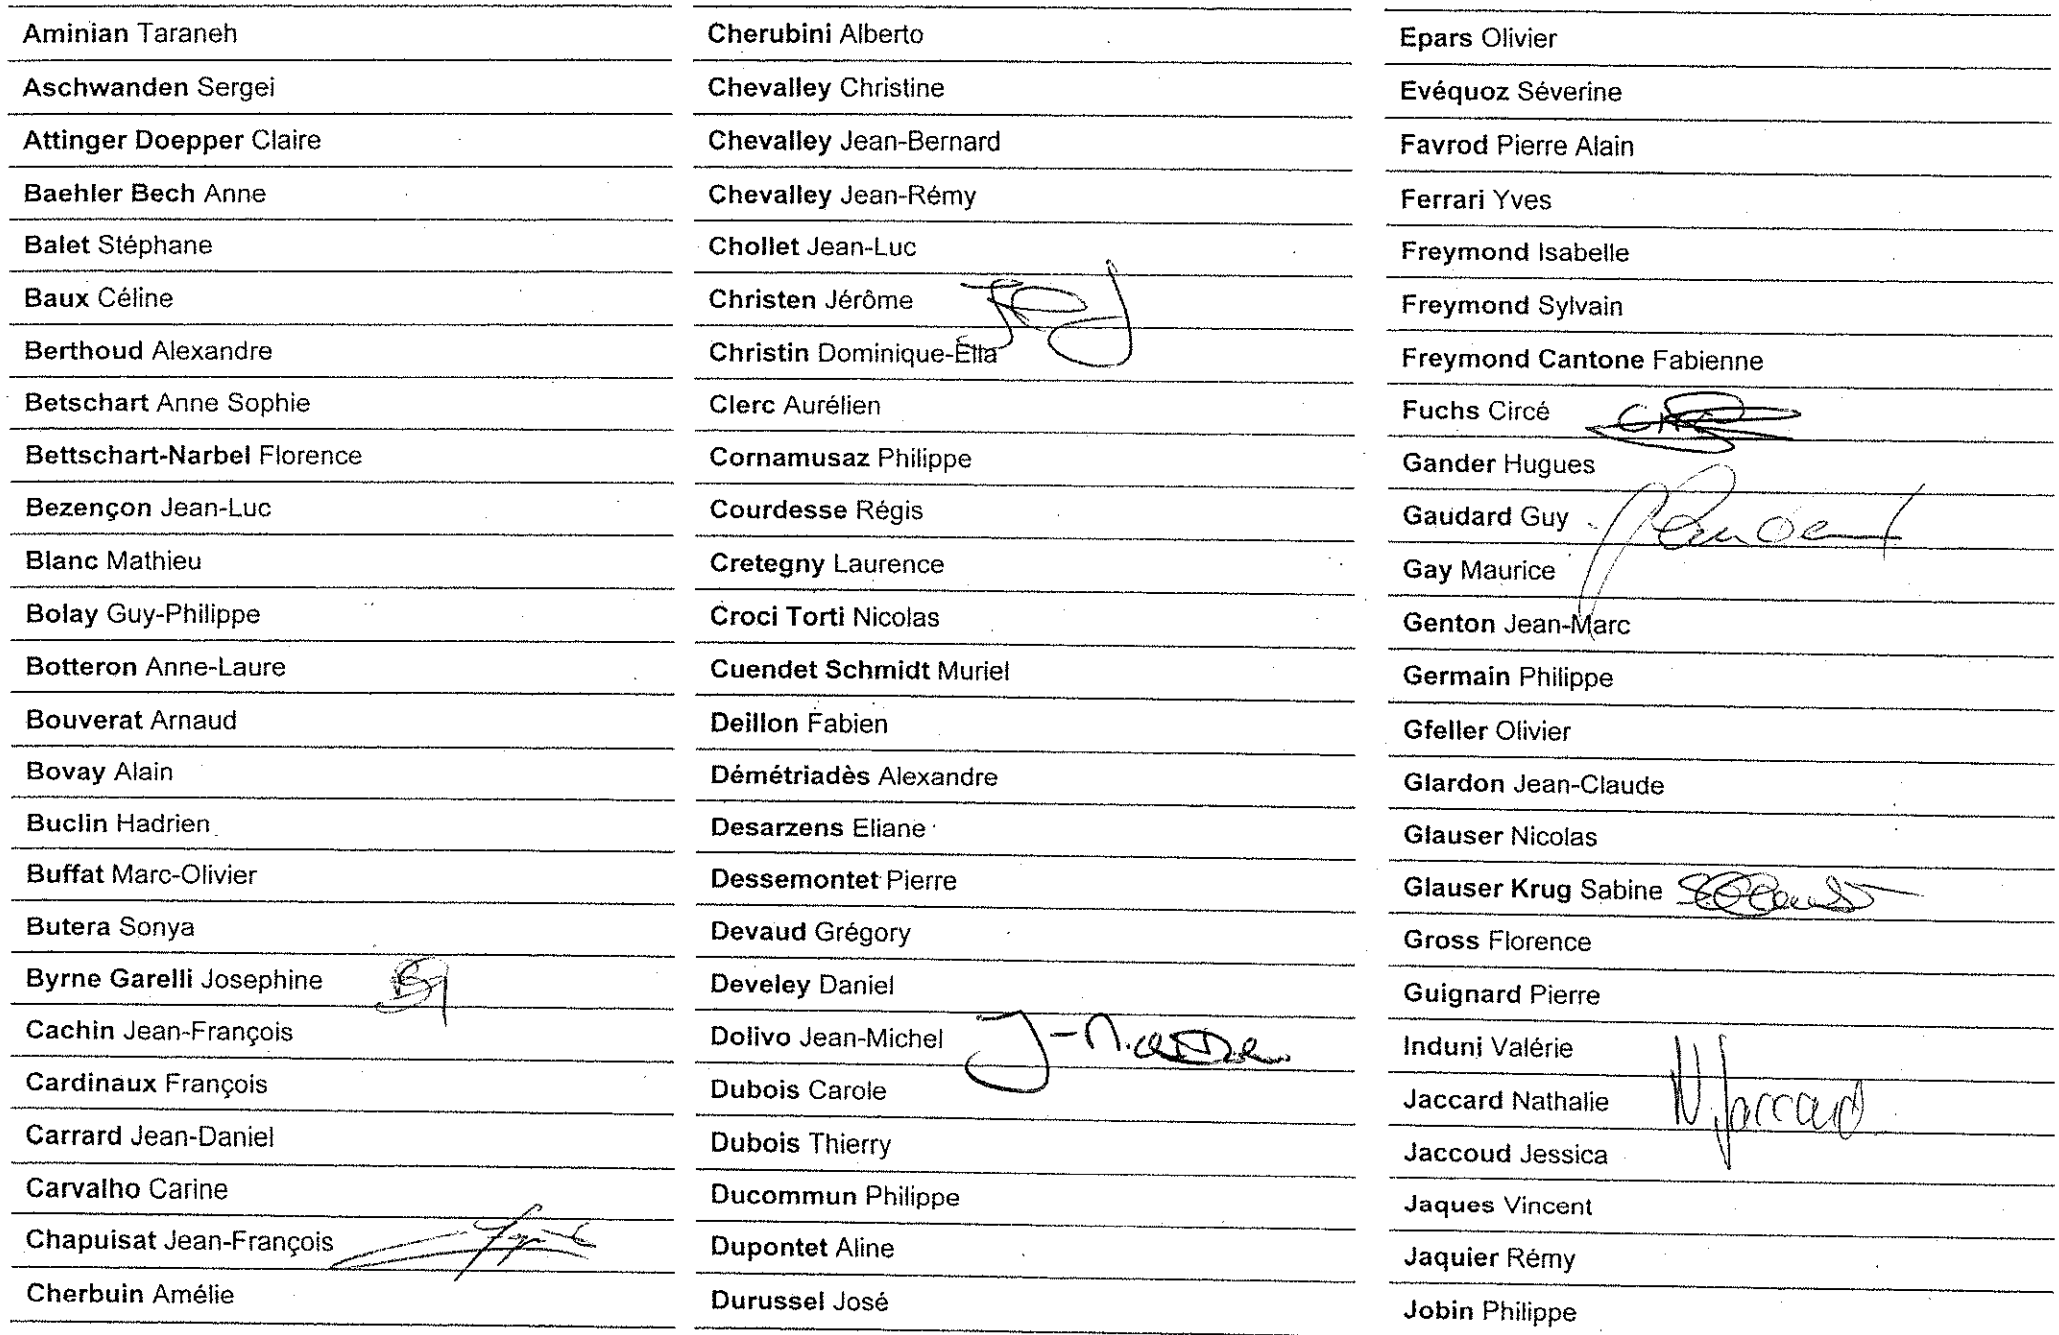 Aminian Taraneh
Aschwanden Sergei
Attinger Doepper Claire
Baehler Bech Anne
Balet Stéphane
Baux Céline
Berthoud Alexandre
Betschart Anne Sophie
Bettschart-Narbel Florence
Bezençon Jean-Luc
Blanc Mathieu
Bolay Guy-Philippe
Botteron Anne-Laure
Bouverat Arnaud
Bovay Alain
Buclin Hadrien
Buffat Marc-Olivier
Butera Sonya
Byrne Garelli Josephine
Cachin Jean-François
Cardinaux François
Carrard Jean-Daniel
Carvalho Carine
Chapuisat Jean-François
Cherbuin Amélie
Cherubini Alberto
Chevalley Christine
Chevalley Jean-Bernard
Chevalley Jean-Rémy
Chollet Jean-Luc
Christen Jérôme
Christin Dominique-Ella
Clerc Aurélien
Cornamusaz Philippe
Courdesse Régis
Cretegny Laurence
Croci Torti Nicolas
Cuendet Schmidt Muriel
Deillon Fabien
Démétriadès Alexandre
Desarzens Eliane
Dessemontet Pierre
Devaud Grégory
Develey Daniel
Dolivo Jean-Michel
Dubois Carole
Dubois Thierry
Ducommun Philippe
Dupontet Aline
Durussel José
Epars Olivier
Evéquoz Séverine
Favrod Pierre Alain
Ferrari Yves
Freymond Isabelle
Freymond Sylvain
Freymond Cantone Fabienne
Fuchs Circé
Gander Hugues
Gaudard Guy
Gay Maurice
Genton Jean-Marc
Germain Philippe
Gfeller Olivier
Glardon Jean-Claude
Glauser Nicolas
Glauser Krug Sabine
Gross Florence
Guignard Pierre
Induni Valérie
Jaccard Nathalie N. Jaccard
Jaccoud Jessica
Jaques Vincent
Jaquier Rémy
Jobin Philippe